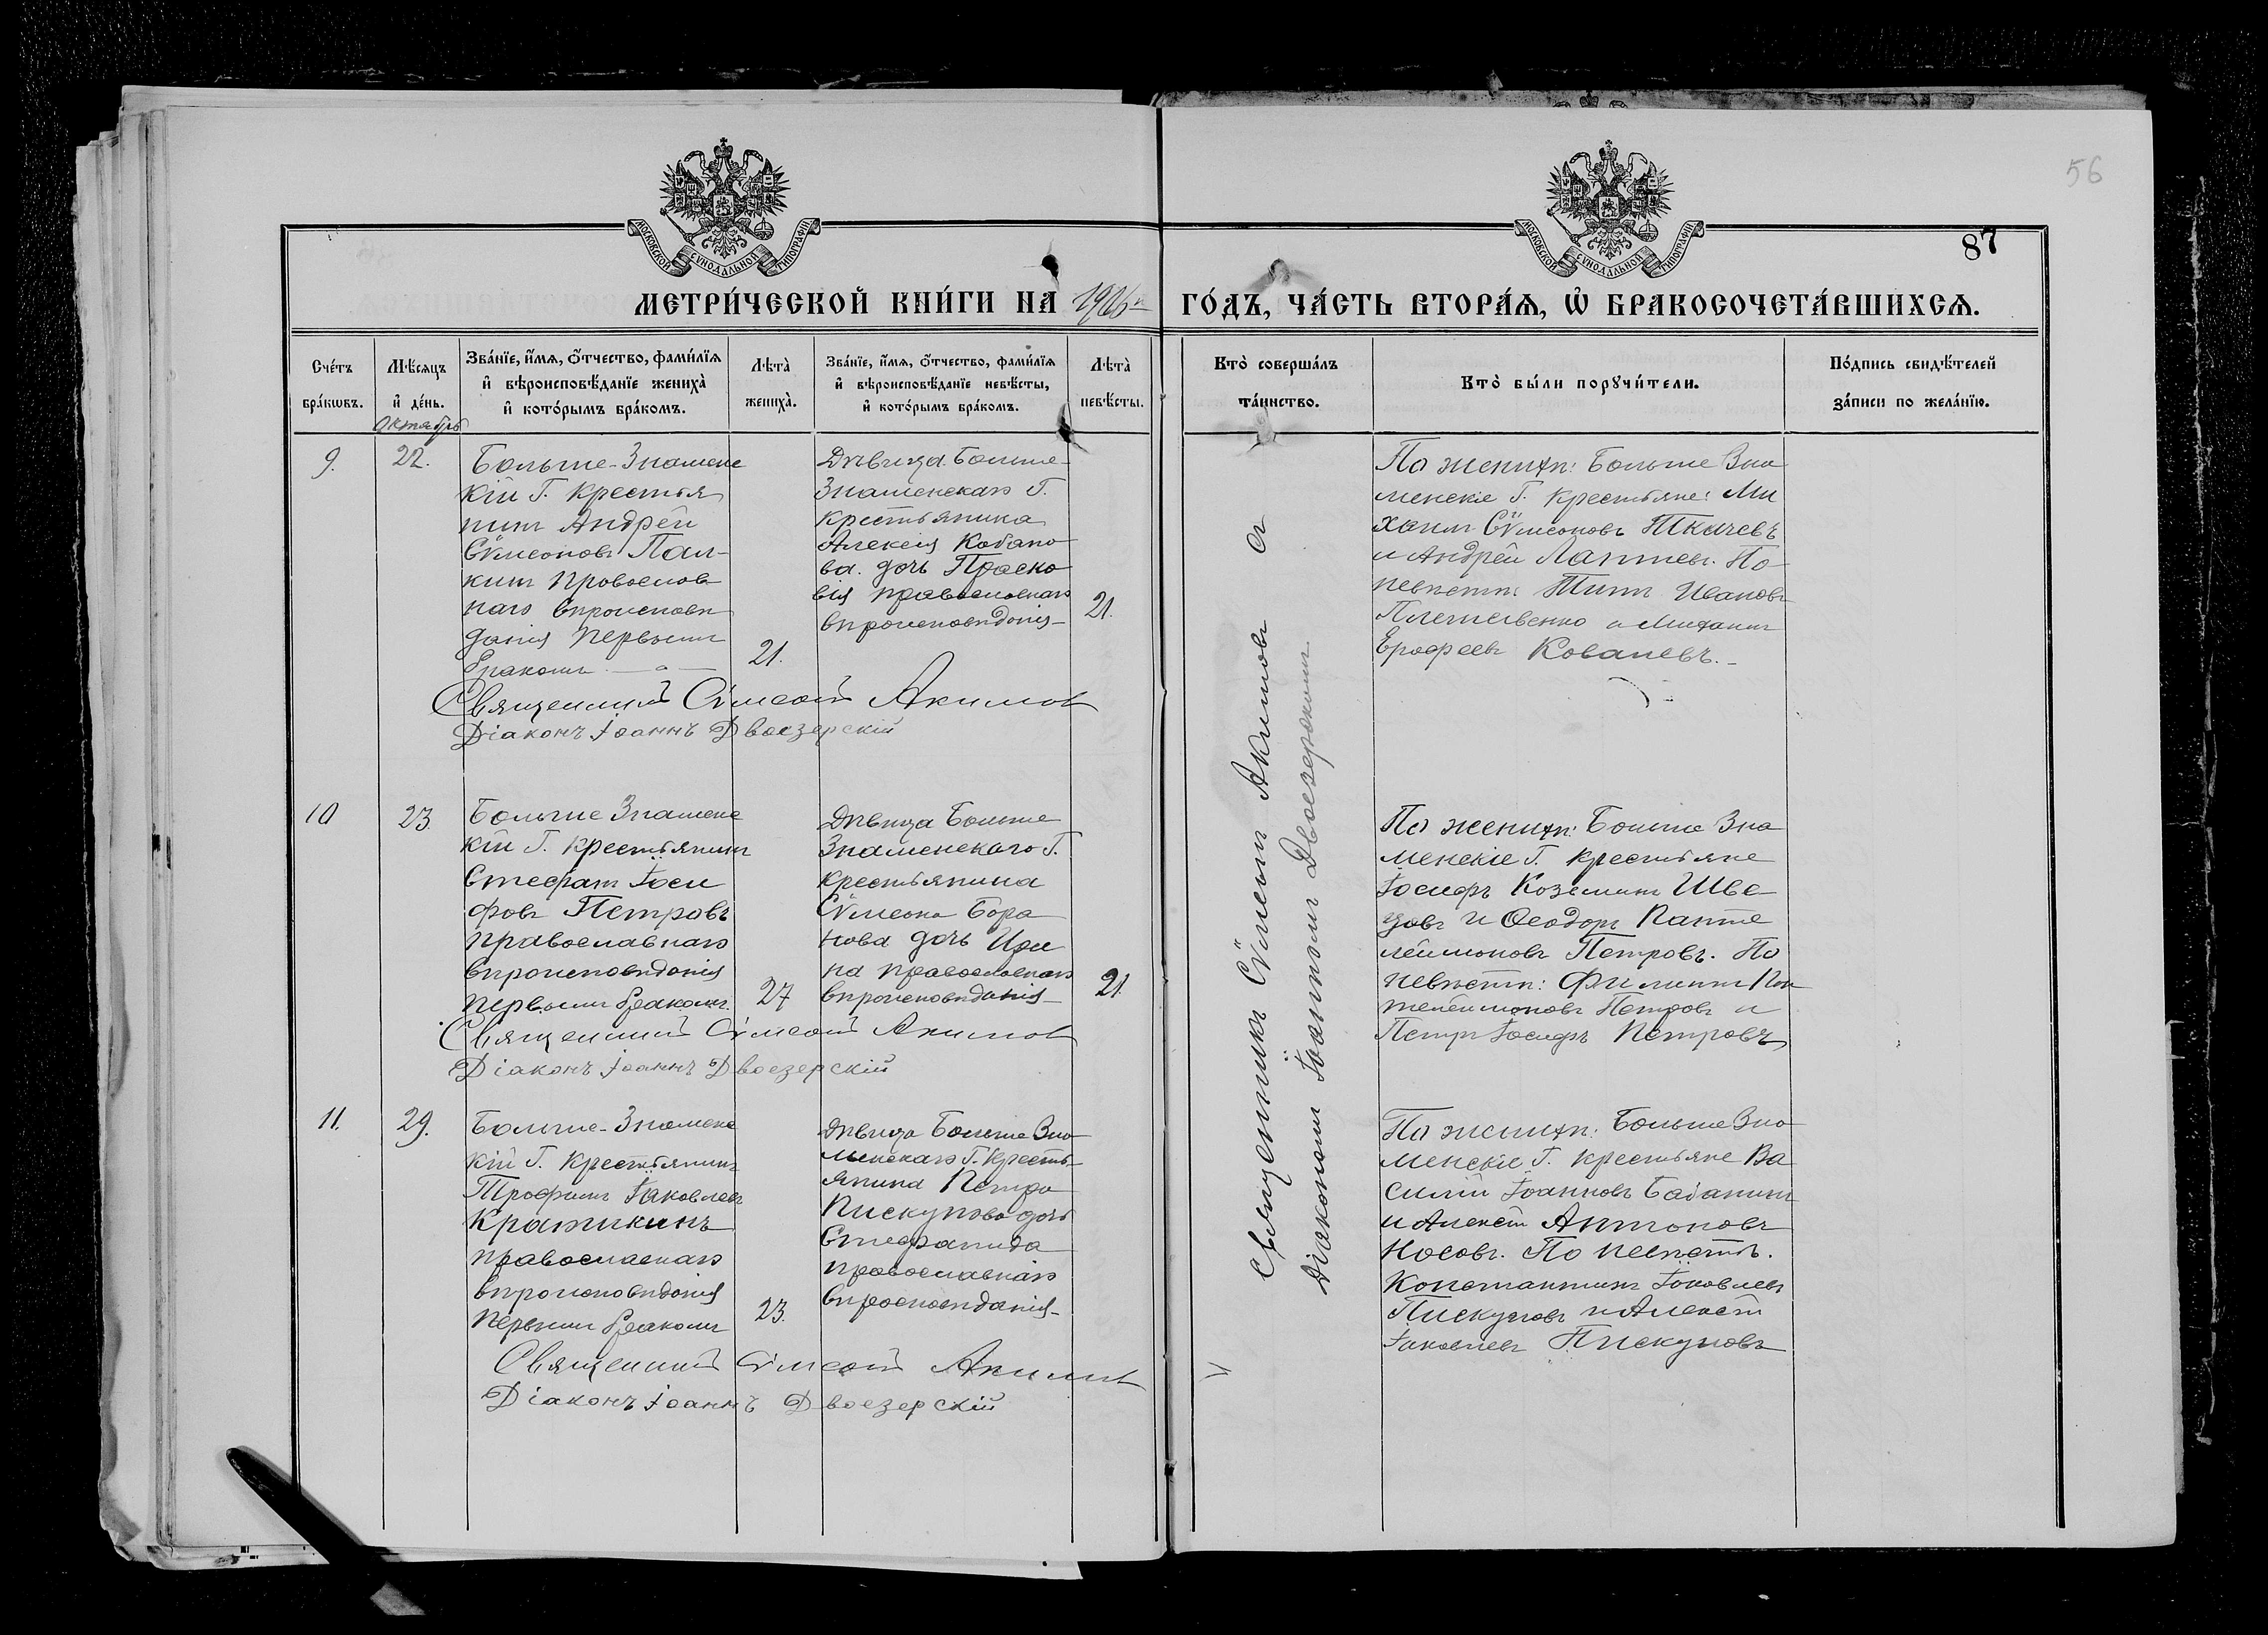 56
87
МОСКОВСКОЙ СУНОДАЛЬНОЙ ТИПОГРАФІИ
МОСКОВСКОЙ СУНОДАЛЬНОЙ ТИПОГРАФІИ
МЕТРИ́ЧЕСКОЙ КНИ́ГИ НА
ГО́ДЪ, ЧА́СТЬ ВТОРА́Я, Ѡ БРАКОСОЧЕТА́ВШИХСЯ.
Сче́тъ бра́кѡвъ.
Мѣ́сяцъ и҆ де́нь.
Зва́нїе, и҆́мя, ѻ҆́тчество, фами́лїя
и҆ вѣроисповѣ́данїе жениха̀
и҆ кото́рымъ бра́комъ.
Лѣта̀ жениха̀.
Зва́нїе, и҆́мя, ѻ҆́тчество, фами́лїя
и҆ вѣроисповѣ́данїе невѣ́сты,
и҆ кото́рымъ бра́комъ.
Лѣта̀ невѣ́сты.
Кто̀ соверша́лъ та́инство.
Кто̀ бы́ли порꙋчи́тели.
По́дпись свидѣ́телей
за́писи по жела́нїю.
Октябрь
9.
22.
Больше-Знаменс
кій Г. крестья
нинъ Андрей
Сѵмеоновъ Пал-
кинъ православ
наго вѣроисповѣ
данія первымъ
бракомъ
21.
Дѣвица Больше-
Знаменскаго Г.
крестьянина
Алексія Кобано
ва. дочь Праско
вія православнаго
вѣроисповѣданія
21.
По женихѣ: Больше Зна
менскіе Г. крестьяне: Ми
хаилъ Сѵмеоновъ Ткачевъ
и Андрей Лаптевъ. По
невѣстѣ: Титъ Ивановъ
и Михаилъ
Ерофеевъ Ковалевъ.
Священникъ Сѵмеонъ Акимов
Діаконъ Іоаннъ Двоезерскій
10
23.
Больше Знаменс
кій Г. крестьянинъ
Стефанъ Іоси
фовъ Петровъ
православнаго
вѣроисповѣданія
первымъ бракомъ.
27
Дѣвица Больше
Знаменскаго Г.
крестьянина
Сѵмеона Бора
нова дочь Ири
на православнаго
вѣроисповѣданія
21.
По женихѣ: Больше Зна
менскіе Г. крестьяне
Іосифъ Козьминъ Шве
цовъ и Ѳеодоръ Панте
леймоновъ Петровъ. По
невѣстѣ: Филиппъ Пан
телеймоновъ Петровъ и
Петръ Іосифъ Петровъ
Священникъ Сѵмеонъ Акимов
Діаконъ Іоаннъ Двоезерскій
11.
29.
Больше-Знаменс
кій Г. крестьянинъ
Трофимъ Іаковлевъ
православнаго
вѣроисповѣданія
первымъ бракомъ
23.
Дѣвица Больше Зна
менскаго Г. кресть-
янина Петра
Пискунова дочь
Стефанида
православнаго
вѣроисповѣданія
По женихѣ: Больше Зна
менскіе Г. крестьяне Ва
силій Іоанновъ Бабанинъ
и Алексѣй Антоновъ
Носовъ. По невѣстѣ.
Константинъ Іаковлевъ
Пискуновъ и Алексѣй
Іаковлевъ Пискуновъ
Священникъ Сѵмеонъ Акимов
Діаконъ Іоаннъ Двоезерскій
Священникъ Сѵмеонъ Акимовъ съ
Діакономъ Іоанномъ Двоезерскимъ